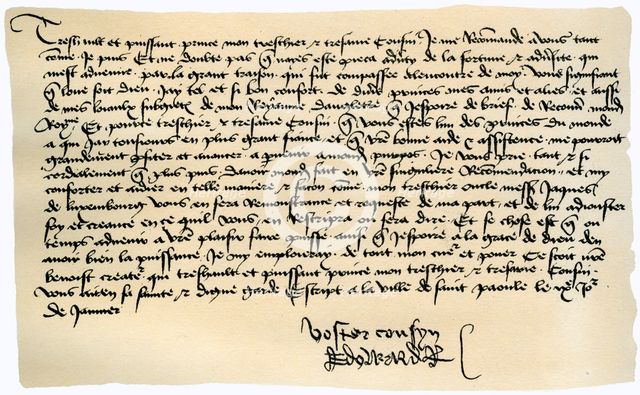 Treshault et puissant prince mon treschier & tresame Cousin Je me Recōmande a vous tant
cōme Je puis Et ne doubte pas q̄ nayes este pieca aduty de la fortune & aduⁱsite qui
mest aduenue par la grant traison qui fut compassee alencontre de moy vous signifiant
q̄ loue soit dieu Jay tel et si bon confort de diūs princes mes amis et aliez et aussi
de mes loiaulx subgietz de mon Royaume dangleterre q̄ Jespoire de brief de Recouūr mond
Royme Et pource treschier & tresame Cousin q̄ vous estes lun des princes du monde
a qui Jay tousiours eu plus grant fiance et q̄ vr̄e bonne aide & assistence me pourroit
grandement pfiter et auancer a pvenir a mond propos Je vous prie tant & si
cordialement q̄ plus puis dauoir mond fait en vr̄e singuliere Recōmendacion et my
conforter et aidier en telle maniere & facon cōme mon treschier oncle mess Jaques
de luxembourg vous en fera Remonstrance et requeste de ma part et de lui adiouster
foy et creance en ce quil vous en rescripra ou fera dire Et se chose est q̄ ou
temps aduenir a vr̄e plaisir faire puisse ainsi q̄ Jespoire a la grace de dieu den
auoir bien la puissance Je my emploieray de tout mon cuer et pouer Ce scet nr̄e
benoist creater qui treshault et puissant prince mon treschier & tresame Cousin
vous ait en sa sainte & digne garde Escript a la ville de saint pooule le Jor
de Januier
voster cousyn
Edoward R